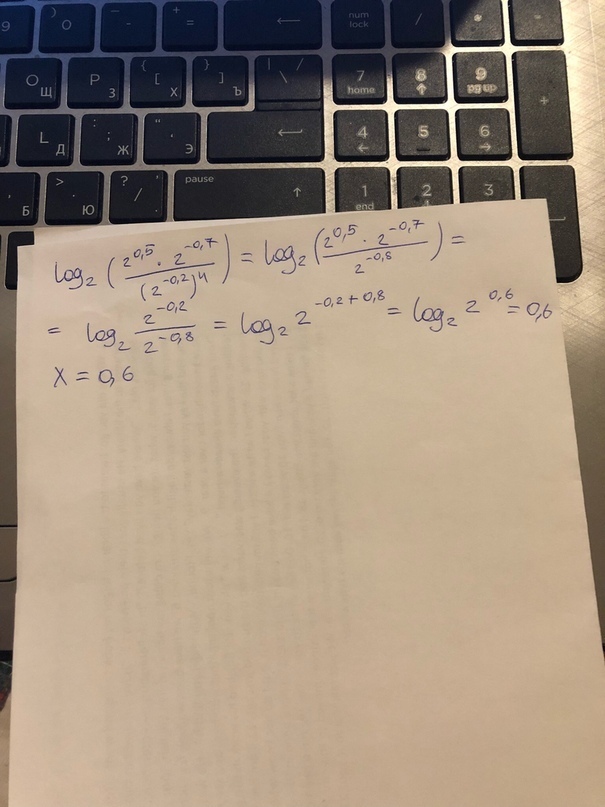 9 ) 0 _ - + = ← num lock / * -
О Щ P З { [ Х } ] Ъ | / \ 7 home 8 ↑ 9 pg up +
L Д : ; Ж " ' Э ← 4 ← 5 6 →
Б > . Ю ? / pause ↑ 1 end 2 3
log₂ (2^0,5 · 2^-0,7 / (2^-0,2)^4) = log₂ (2^0,5 · 2^-0,7 / 2^-0,8) =
= log₂ 2^-0,2 / 2^-0,8 = log₂ 2^-0,2+0,8 = log₂ 2^0,6 = 0,6
X = 0,6